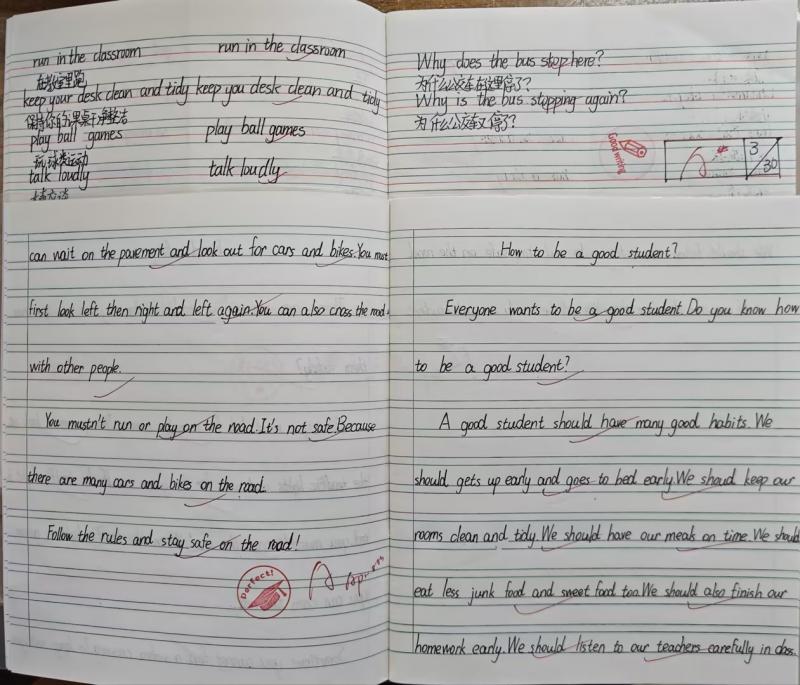 run in the classroom run in the classroom
在教室里跑
keep your desk clean and tidy keep you desk clean and tidy
保持你的课桌干净整洁
play ball games play ball games
玩球类运动
talk loudly talk loudly
Why does the bus stop here?
为什么公交车在这里停了?
Why is the bus stopping again?
为什么公交车又停了?
Good writing
3/30
can wait on the pavement and look out for cars and bikes. You must
first look left then right and left again. You can also cross the road
with other people.
You mustn't run or play on the road. It's not safe. Because
there are many cars and bikes on the road.
Follow the rules and stay safe on the road!
Perfect!
How to be a good student?
Everyone wants to be a good student. Do you know how
to be a good student?
A good student should have many good habits. We
should gets up early and goes to bed early. We shoud keep our
rooms clean and tidy. We should have our meals on time. We should
eat less junk food and sweet food too. We should also finish our
homework early. We should listen to our teachers carefully in class.